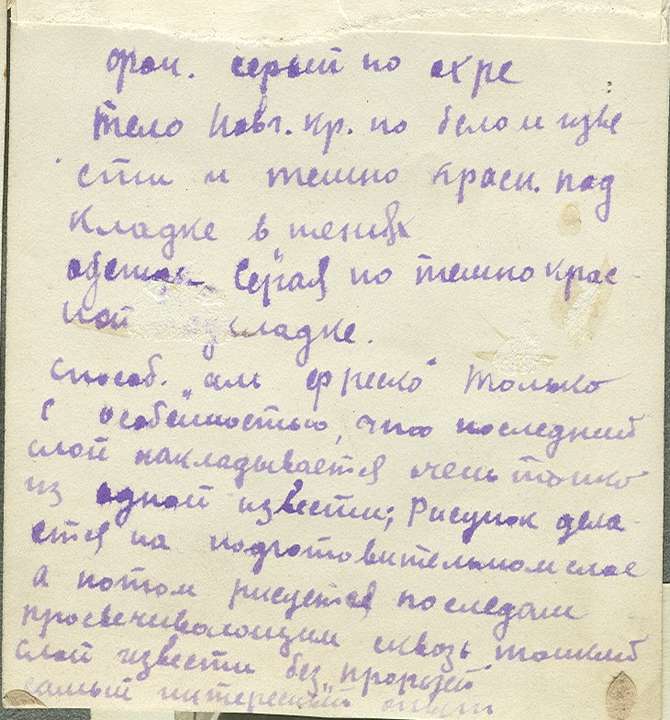 фон. серый по охре
тело Новг. кр. по белом изве
сти и темно красн. под
кладке в тенях
одежда серая по темнокрас-
ной кладке.
способ. "аль фреско" только
с особенностью, что последний
слой накладывается очень тонко
из одной извести; Рисунок дела-
ется на подготовительном слое
а потом рисуется по следам
просвечивающим сквозь тонкий
слой извести без "прорезей"
самый интересный